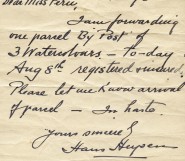 Dear Miss Perci,
I am forwarding
one parcel By Post of
3 Watercolours - to-day
Aug 8th registered & insured.
Please let me know arrival
of parcel - In haste.
Yours sincerely
Hans Heysen